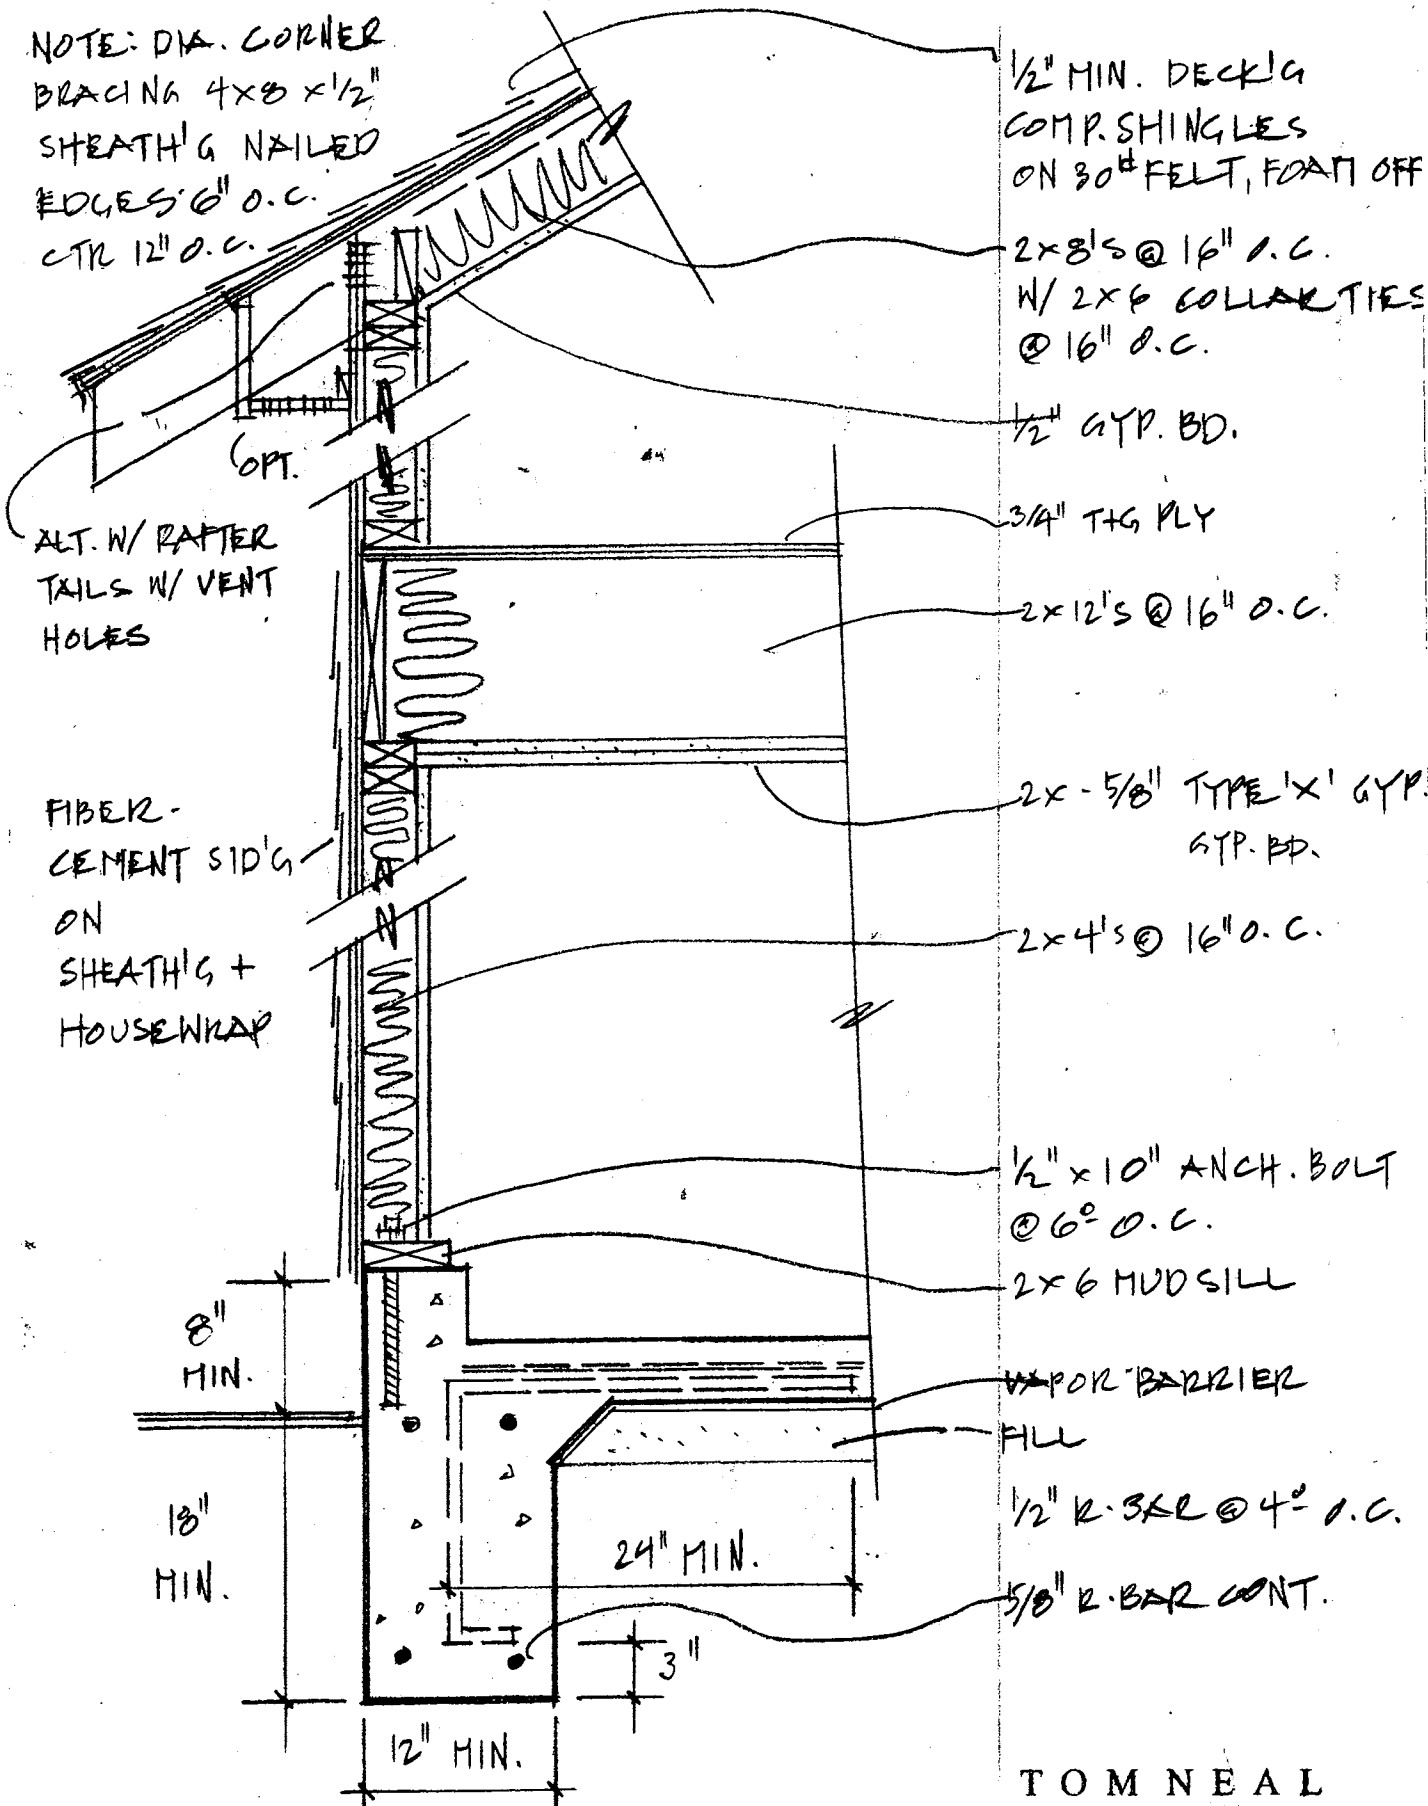 NOTE: DIA. CORNER
BRACING 4x8 x 1/2"
SHEATH'G NAILED
EDGES 6" O.C.
CTR 12" O.C.
OPT.
ALT. W/ RAFTER
TAILS W/ VENT
HOLES
FIBER-
CEMENT SID'G
ON
SHEATH'G +
HOUSEWRAP
8"
MIN.
18"
MIN.
12" MIN.
24" MIN.
3"
1/2" MIN. DECK'G
COMP. SHINGLES
ON 30# FELT, FOAM OFF
2x8's @ 16" O.C.
W/ 2x6 COLLAR TIES
@ 16" O.C.
1/2" GYP. BD.
3/4" T+G PLY
2x12's @ 16" O.C.
2x - 5/8" TYPE 'X' GYP.
GYP. BD.
2x4's @ 16" O.C.
1/2" x 10" ANCH. BOLT
@ 6º O.C.
2x6 MUDSILL
VAPOR BARRIER
FILL
1/2" R-BAR @ 4º O.C.
5/8" R-BAR CONT.
TOM NEAL